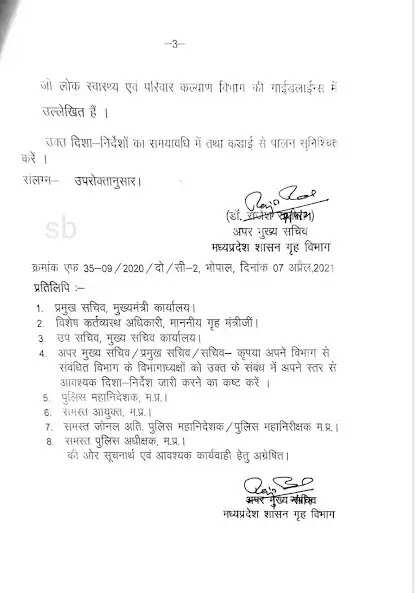 —3—
जो लोक स्वास्थ्य एवं परिवार कल्याण विभाग की गाईडलाईन्स में
उल्लेखित हैं ।
उक्त दिशा-निर्देशों का समयावधि में तथा कडाई से पालन सुनिश्चित
करें ।
संलग्न- उपरोक्तानुसार।
sb
(डॉ. राजेश राजौरा)
अपर मुख्य सचिव
मध्यप्रदेश शासन गृह विभाग
क्रमांक एफ 35-09/2020/दो/सी-2, भोपाल, दिनांक 07 अप्रैल,2021
प्रतिलिपि :-
1. प्रमुख सचिव, मुख्यमंत्री कार्यालय।
2. विशेष कर्तव्यस्थ अधिकारी, माननीय गृह मंत्रीजी।
3. उप सचिव, मुख्य सचिव कार्यालय।
4. अपर मुख्य सचिव/प्रमुख सचिव/सचिव- कृपया अपने विभाग से
संबंधित विभाग के विभागाध्यक्षों को उक्त के संबध में अपने स्तर से
आवश्यक दिशा-निर्देश जारी करने का कष्ट करें ।
5. पुलिस महानिदेशक, म.प्र.।
6. समस्त आयुक्त, म.प्र.।
7. समस्त जोनल अति. पुलिस महानिदेशक/पुलिस महानिरीक्षक म.प्र.।
8. समस्त पुलिस अधीक्षक, म.प्र.।
की ओर सूचनार्थ एवं आवश्यक कार्यवाही हेतु अग्रेषित।
अपर मुख्य सचिव
मध्यप्रदेश शासन गृह विभाग